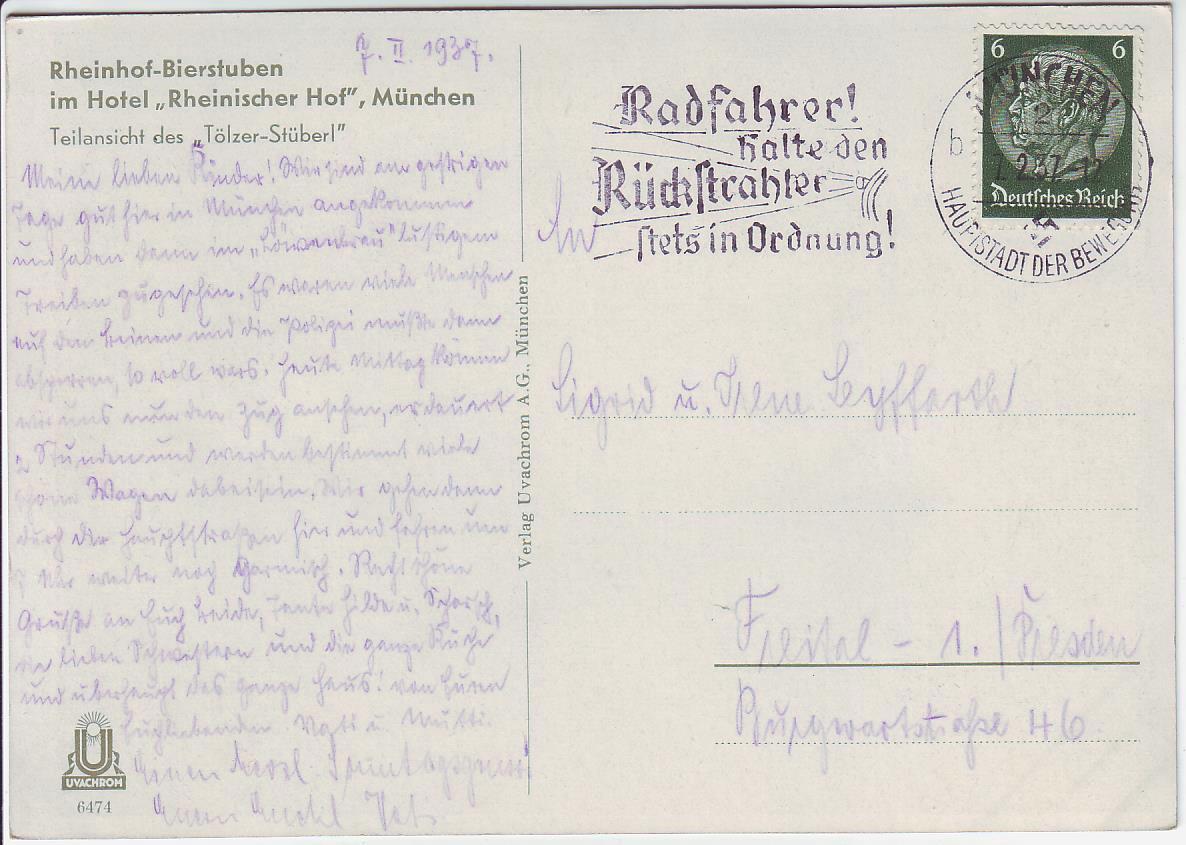 7. II. 1937.
Rheinhof-Bierstuben
im Hotel „Rheinischer Hof”, München
Teilansicht des „Tölzer-Stüberl”
Meine lieben Kinder! Wir sind am gestrigen
Tage gut hier in München angekommen
und haben dann im „Löwenbräu" lustigem
Treiben zugesehen. Es waren viele Menschen
auf den Beinen und die Polizei mußte dann
absperren, so voll wars. Heute Mittag können
wir uns nun den Zug ansehen, er dauert
2 Stunden und werden bestimmt viele
schöne Wagen dabei sein. Wir gehen dann
durch die Hauptstraßen hier und fahren um
7 Uhr weiter nach Garmisch. Recht schöne
Grüße an Euch beide, Tante Hilde u. Schorsch,
die lieben Schwestern und die ganze Küche
und überhaupt das ganze Haus! von Euren
Euchliebenden Vati u. Mutti.
Einen herzl. Sonntagsgruss
Euer Vati
UVACHROM
6474
Verlag Uvachrom A.G., München
Radfahrer!
Halte den
Rückstrahler
stets in Ordnung!
6 6
Deutsches Reich
MÜNCHEN
b
7.2.37.-12
HAUPTSTADT DER BEWEGUNG
An
Sigrid u. Irene Seyffarth
Freital - 1. / Dresden
Burgwartstraße 46.